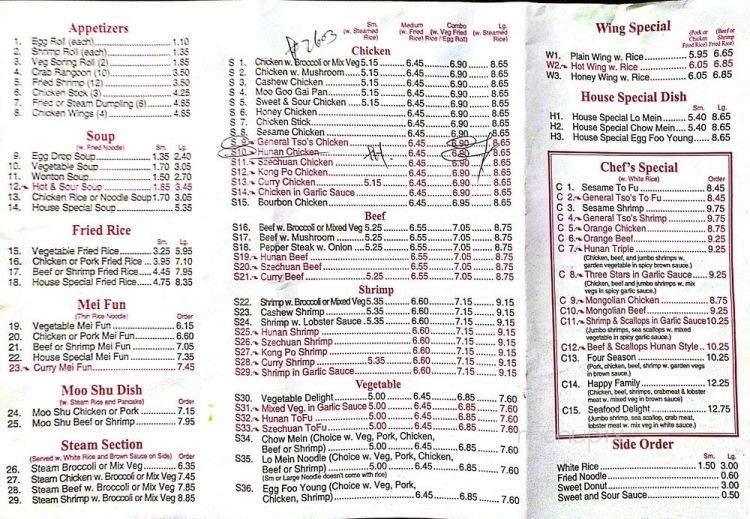 Appetizers
1. Egg Roll (each) 1.10
2. Shrimp Roll (each) 1.35
3. Veg Spring Roll (2) 1.85
4. Crab Rangoon (10) 3.50
5. Fried Shrimp (12) 3.50
6. Chicken Stick (3) 4.25
7. Fried or Steam Dumpling (6) 4.65
8. Chicken Wings (4) 4.65
Soup
(w. Fried Noodle) Sm. Lg.
9. Egg Drop Soup 1.35 2.40
10. Vegetable Soup 1.70 3.05
11. Wonton Soup 1.50 2.70
12. Hot & Sour Soup 1.85 3.45
13. Chicken Rice or Noodle Soup 1.70 3.05
14. House Special Soup 5.35
Fried Rice
Sm. Lg.
15. Vegetable Fried Rice 3.25 5.95
16. Chicken or Pork Fried Rice 3.95 7.10
17. Beef or Shrimp Fried Rice 4.45 7.95
18. House Special Fried Rice 4.75 8.35
Mei Fun
(Thin Rice Noodle) Order
19. Vegetable Mei Fun 6.15
20. Chicken or Pork Mei Fun 6.60
21. Beef or Shrimp Mei Fun 7.05
22. House Special Mei Fun 7.35
23. Curry Mei Fun 7.45
Moo Shu Dish
(w. Steam Rice and Pancake) Order
24. Moo Shu Chicken or Pork 7.15
25. Moo Shu Beef or Shrimp 7.95
Steam Section
(Served w. White Rice and Brown Sauce on Side) Order
26. Steam Broccoli or Mix Veg 6.35
27. Steam Chicken w. Broccoli or Mix Veg 7.45
28. Steam Beef w. Broccoli or Mix Veg 7.85
29. Steam Shrimp w. Broccoli or Mix Veg 8.85
#2603
Sm. Medium Combo Lg.
(w. Steamed Rice) (w. Fried Rice) (w. Veg Fried Rice / Egg Roll) (w. Steamed Rice)
Chicken
S 1. Chicken w. Broccoli or Mix Veg 5.15 6.45 6.90 8.65
S 2. Chicken w. Mushroom 5.15 6.45 6.90 8.65
S 3. Cashew Chicken 5.15 6.45 6.90 8.65
S 4. Moo Goo Gai Pan 5.15 6.45 6.90 8.65
S 5. Sweet & Sour Chicken 5.15 6.45 6.90 8.65
S 6. Honey Chicken 6.45 6.90 8.65
S 7. Chicken Stick 6.45 6.90 8.65
S 8. Sesame Chicken 6.45 6.90 8.65
S 9. General Tso's Chicken 6.45 6.90 8.65
S10. Hunan Chicken 6.45 6.90 8.65
S11. Szechuan Chicken 6.45 6.90 8.65
S12. Kong Po Chicken 6.45 6.90 8.65
S13. Curry Chicken 5.15 6.45 6.90 8.65
S14. Chicken in Garlic Sauce 6.45 6.90 8.65
S15. Bourbon Chicken 6.45 6.95 8.65
Beef
S16. Beef w. Broccoli or Mixed Veg 5.25 6.55 7.05 8.75
S17. Beef w. Mushroom 5.25 6.55 7.05 8.75
S18. Pepper Steak w. Onion 5.25 6.55 7.05 8.75
S19. Hunan Beef 6.55 7.05 8.75
S20. Szechuan Beef 6.55 7.05 8.75
S21. Curry Beef 5.25 6.55 7.05 8.75
Shrimp
S22. Shrimp w. Broccoli or Mixed Veg 5.35 6.60 7.15 9.15
S23. Cashew Shrimp 5.35 6.60 7.15 9.15
S24. Shrimp w. Lobster Sauce 5.35 6.60 7.15 9.15
S25. Hunan Shrimp 6.60 7.15 9.15
S26. Szechuan Shrimp 6.60 7.15 9.15
S27. Kong Po Shrimp 6.60 7.15 9.15
S28. Curry Shrimp 5.35 6.60 7.15 9.15
S29. Shrimp in Garlic Sauce 6.60 7.15 9.15
Vegetable
S30. Vegetable Delight 5.00 6.45 6.85 7.60
S31. Mixed Veg. in Garlic Sauce 5.00 6.45 6.85 7.60
S32. Hunan ToFu 5.00 6.45 6.85 7.60
S33. Szechuan ToFu 5.00 6.45 6.85 7.60
S34. Chow Mein (Choice w. Veg, Pork, Chicken,
Beef or Shrimp) 5.00 6.45 6.85 7.60
S35. Lo Mein Noodle (Choice w. Veg, Pork, Chicken,
Beef or Shrimp) 5.00 6.45 6.85 7.60
(Sm or Large Noodle doesn't come with rice)
S36. Egg Foo Young (Choice w. Veg, Pork,
Chicken, Shrimp) 6.45 6.85 7.60
Wing Special
(Pork or Chicken Fried Rice) (Beef or Shrimp Fried Rice)
W1. Plain Wing w. Rice 5.95 6.65
W2. Hot Wing w. Rice 6.05 6.85
W3. Honey Wing w. Rice 6.05 6.85
House Special Dish
Sm. Lg.
H1. House Special Lo Mein 5.40 8.65
H2. House Special Chow Mein 5.40 8.65
H3. House Special Egg Foo Young 8.65
Chef's Special
(w. White Rice) Order
C 1. Sesame To Fu 8.45
C 2. General Tso's To Fu 8.45
C 3. Sesame Shrimp 9.75
C 4. General Tso's Shrimp 9.75
C 5. Orange Chicken 8.75
C 6. Orange Beef 9.25
C 7. Hunan Triple 9.25
(Chicken, beef, and jumbo shrimps w.
garden vegetable in spicy brown sauce.)
C 8. Three Stars in Garlic Sauce 9.25
(Chicken, beef and jumbo shrimps w. mix
vegs in spicy garlic sauce.)
C 9. Mongolian Chicken 8.75
C10. Mongolian Beef 9.25
C11. Shrimp & Scallops in Garlic Sauce 10.25
(Jumbo shrimps, sea scallops w. mixed
vegetable in spicy garlic sauce)
C12. Beef & Scallops Hunan Style 10.25
C13. Four Season 9.25
(Pork, chicken, beef, shrimp w. garden vegs
in brown sauce.)
C14. Happy Family 12.25
(Chicken, beef, shrimps, crabmeat & lobster
meat w. mixed veg in brown sauce)
C15. Seafood Delight 12.75
(Jumbo shrimp, sea scallop, crab meat,
lobster meat w. mix veg in white sauce.)
Side Order
Sm. Lg.
White Rice 1.50 3.00
Fried Noodle 0.60
Sweet Donut 3.00
Sweet and Sour Sauce 0.50